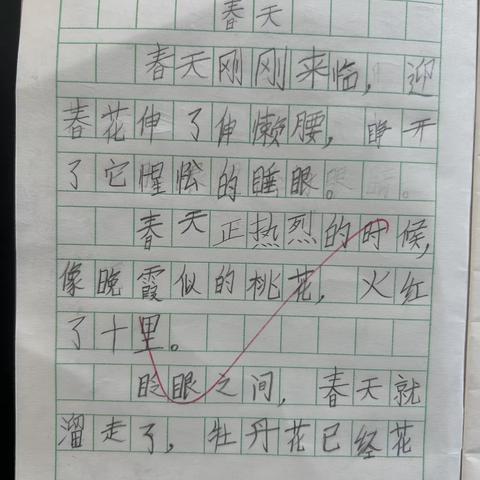 春天
春天刚刚来临，迎
春花伸了伸懒腰，睁开
了它惺忪的睡眼。
春天正热烈的时候，
像晚霞似的桃花，火红
了十里。
眨眼之间，春天就
溜走了，牡丹花已经花